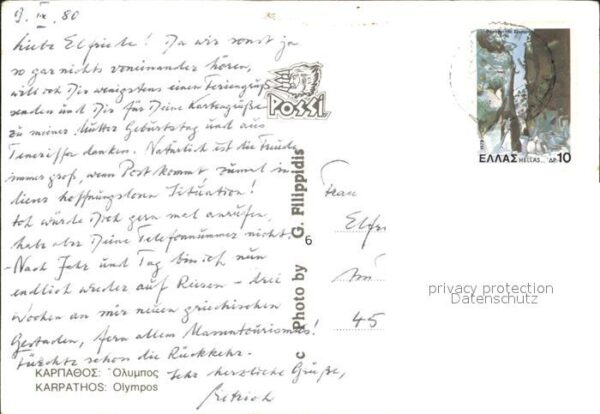 9. IX. 80
Liebe Elfriede! Da wir sonst ja
so gar nichts voneinander hören,
will ich Dir wenigstens einen Feriengruß
senden und Dir für Deine Kartengrüße
zu meiner Mutter Geburtstag und aus
Teneriffa danken. Natürlich ist die Freude
immer groß, wenn Post kommt, zumal in
dieser hoffnungslosen Situation!
Ich würde Dich gern mal anrufen,
habe aber Deine Telefonnummer nicht.
- Nach Jahr und Tag bin ich nun
endlich wieder auf Reisen - drei
Wochen an mir neuen griechischen
Gestaden, fern allem Massentourismus!
Fürchte schon die Rückkehr.
Sehr herzliche Grüße,
ΚΑΡΠΑΘΟΣ: Ὄλυμπος
KARPATHOS: Olympos
POSSI
c Photo by G. Filippidis
6
ΕΛΛΑΣ
HELLAS
ΔΡ. 10
1979
Frau
Elfri
45
privacy protection
Datenschutz